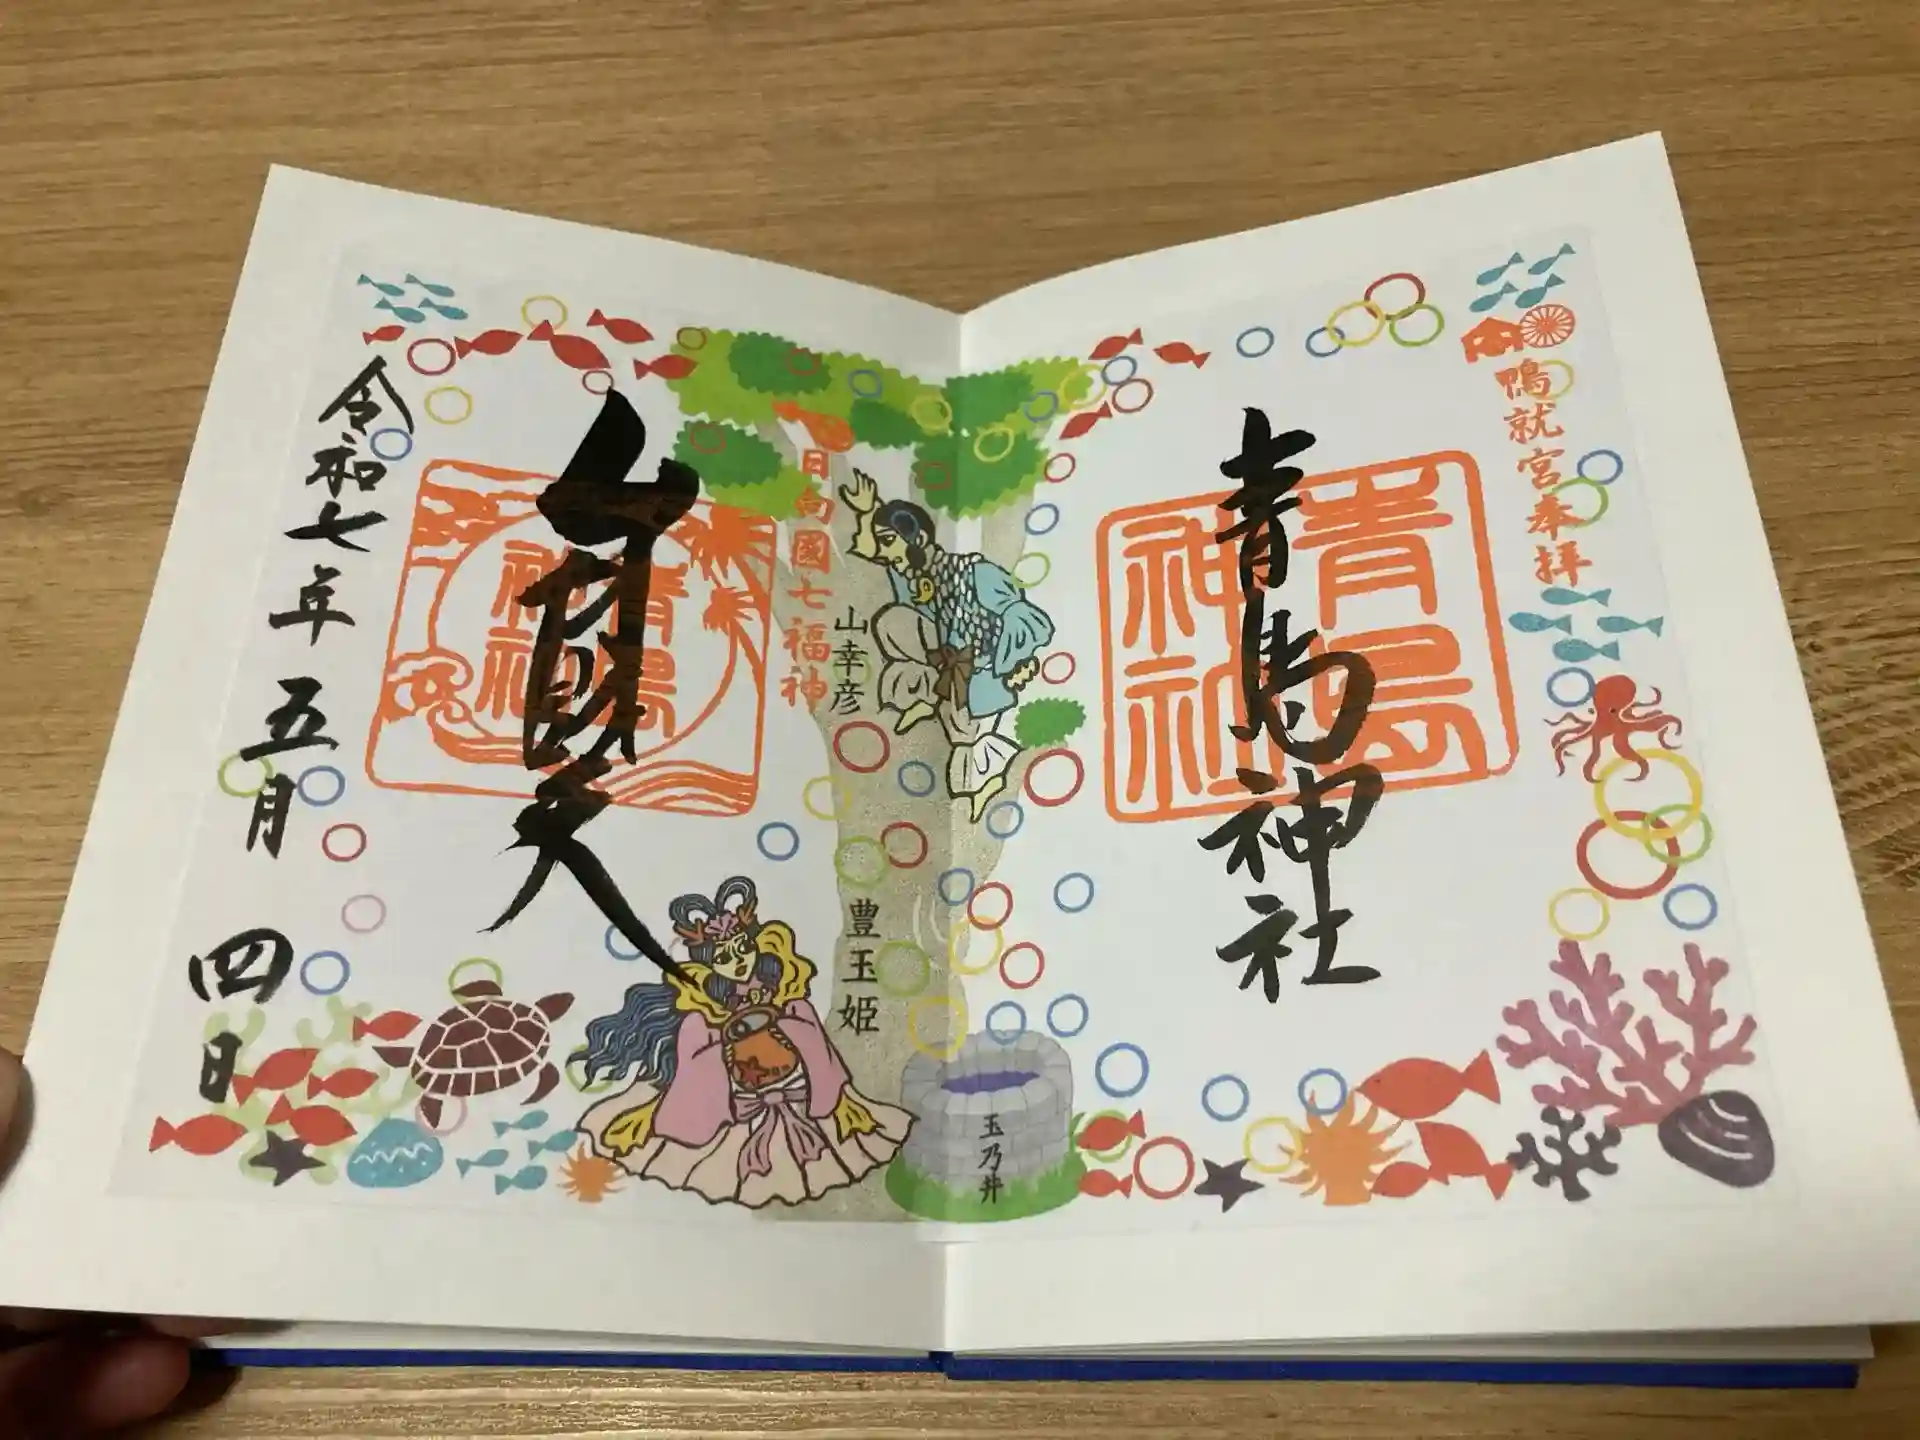 鴨就宮奉拝
青島神社
青島神社
山幸彦
日向國七福神
豊玉姫
玉乃井
弁財天
青島神社
令和七年五月四日